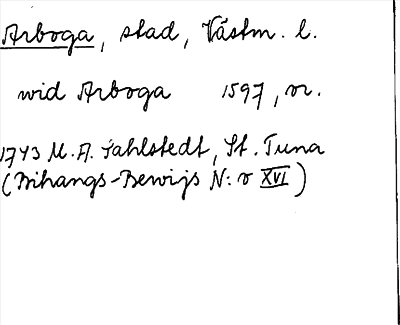 Arboga, stad, Västm. l.
wid Arboga 1597, or.
1743 M. A. Sahlstedt, St. Tuna
(Bihangs-Bewijs N:r XVI)